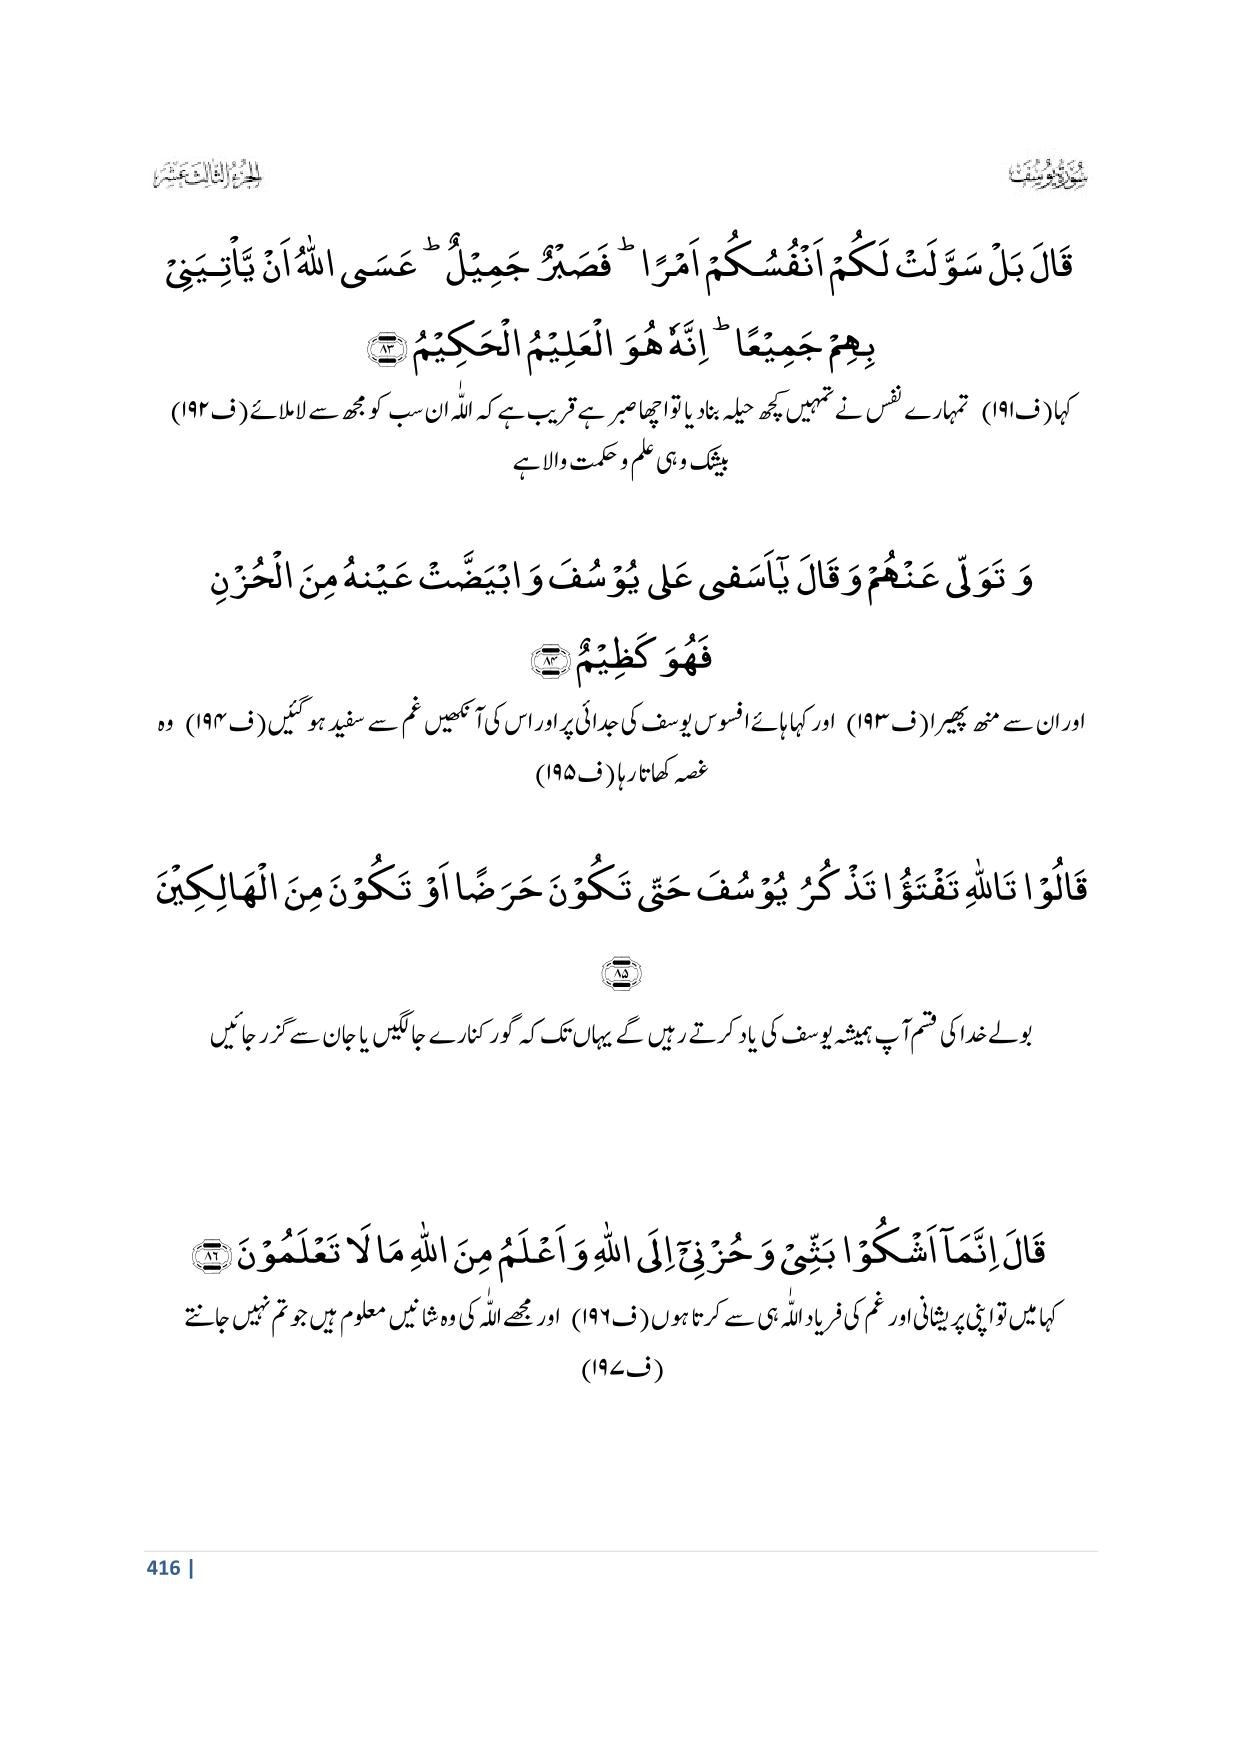 سُوْرَةُ يُوْسُف
الجزء الثالث عشر
قَالَ بَلْ سَوَّلَتْ لَكُمْ اَنْفُسُكُمْ اَمْرًا ؕ فَصَبْرٌ جَمِيْلٌ ؕ عَسَى اللّٰهُ اَنْ يَّاْتِيَنِيْ
بِهِمْ جَمِيْعًا ؕ اِنَّهٗ هُوَ الْعَلِيْمُ الْحَكِيْمُ ﴿۸۳﴾
کہا (ف۱۹۱) تمہارے نفس نے تمہیں کچھ حیلہ بنادیا تو اچھا صبر ہے قریب ہے کہ اللّٰہ ان سب کو مجھ سے لا ملائے (ف۱۹۲)
بیشک وہی علم و حکمت والا ہے
وَ تَوَلّٰى عَنْهُمْ وَ قَالَ يٰۤاَسَفٰى عَلٰى يُوْسُفَ وَ ابْيَضَّتْ عَيْنٰهُ مِنَ الْحُزْنِ
فَهُوَ كَظِيْمٌ ﴿۸۴﴾
اور ان سے منھ پھیرا (ف۱۹۳) اور کہا ہائے افسوس یوسف کی جدائی پر اور اس کی آنکھیں غم سے سفید ہو گئیں (ف۱۹۴) وہ
غصہ کھاتا رہا (ف۱۹۵)
قَالُوْا تَاللّٰهِ تَفْتَؤُا تَذْكُرُ يُوْسُفَ حَتّٰى تَكُوْنَ حَرَضًا اَوْ تَكُوْنَ مِنَ الْهَالِكِيْنَ
﴿۸۵﴾
بولے خدا کی قسم آپ ہمیشہ یوسف کی یاد کرتے رہیں گے یہاں تک کہ گور کنارے جا لگیں یا جان سے گزر جائیں
قَالَ اِنَّمَاۤ اَشْكُوْا بَثِّيْ وَ حُزْنِيْۤ اِلَى اللّٰهِ وَ اَعْلَمُ مِنَ اللّٰهِ مَا لَا تَعْلَمُوْنَ ﴿۸۶﴾
کہا میں تو اپنی پریشانی اور غم کی فریاد اللّٰہ ہی سے کرتا ہوں (ف۱۹۶) اور مجھے اللّٰہ کی وہ شانیں معلوم ہیں جو تم نہیں جانتے
(ف۱۹۷)
416 |